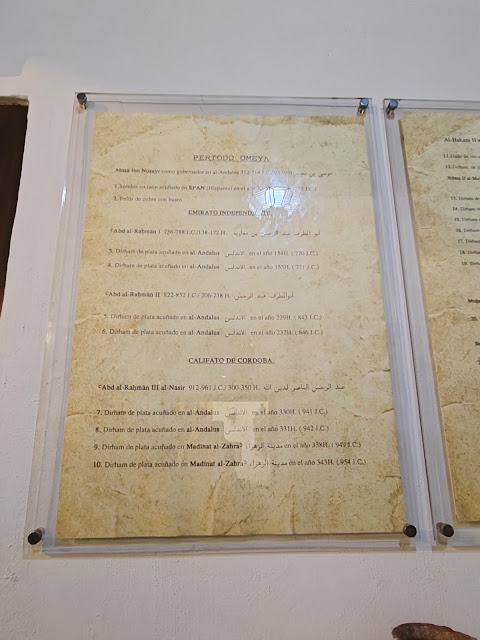 PERIODO OMEYA
Musà ibn Nusayr como gobernador en al-Andalus موسى بن نصير
1. acuñado en SPAN (Hispania) en el año
2. Felús de cobre con busto
EMIRATO INDEPENDIENTE.
ᶜAbd al-Raḥmān I 756-788 J.C./138-172 H. أبو المطرف عبد الرحمن بن معاوية
3. Dirham de plata acuñado en al-Andalus الاندلس en el año 154H. ( 770 J.C.)
4. Dirham de plata acuñado en al-Andalus الاندلس en el año 155H. ( 771 J.C.)
ᶜAbd al-Rahmān II 822-852 J.C./ 206-238 H. أبو المطرف عبد الرحمن
5. Dirham de plata acuñado en al-Andalus الاندلس en el año 229H. ( 843 J.C.)
6. Dirham de plata acuñado en al-Andalus الاندلس en el año 232H. ( 846 J.C.)
CALIFATO DE CORDOBA.
ᶜAbd al-Raḥmān III al-Nasir 912-961 J.C./ 300-350 H. عبد الرحمن الناصر لدين الله
7. Dirham de plata acuñado en al-Andalus الاندلس en el año 330H. ( 941 J.C.)
8. Dirham de plata acuñado en al-Andalus الاندلس en el año 331H. ( 942 J.C.)
9. Dirham de plata acuñado en Madinat al-Zahraʾ مدينة الزهراء en el año 338H. ( 949 J.C.)
10. Dirham de plata acuñado en Madinat al-Zahraʾ مدينة الزهراء en el año 343H. ( 954 J.C.)
Al-Hakam II